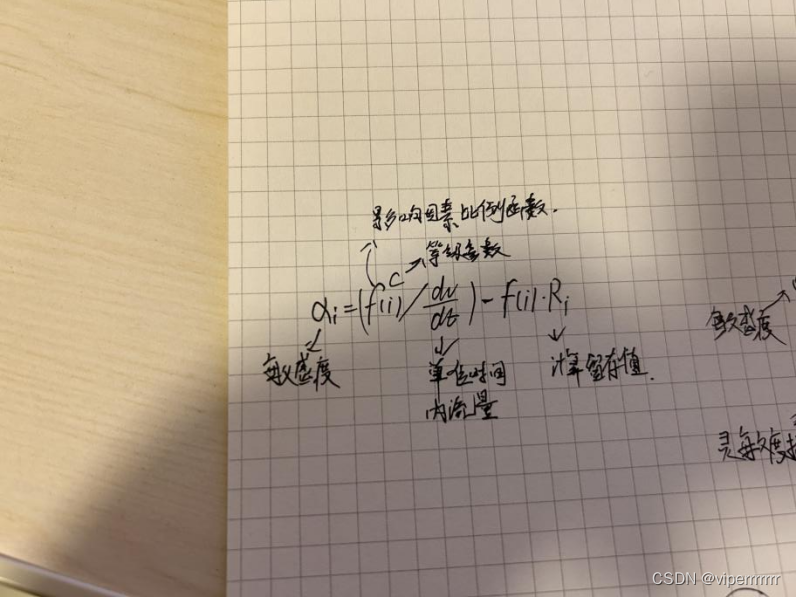 影响因素比例函数.
C → 等级参数
αi = (f(i) / dv/dt) - f(i)·Ri
敏感度
单位时间
内流量
计算留存值.
敏感度
灵敏度
CSDN @viperrrrrr